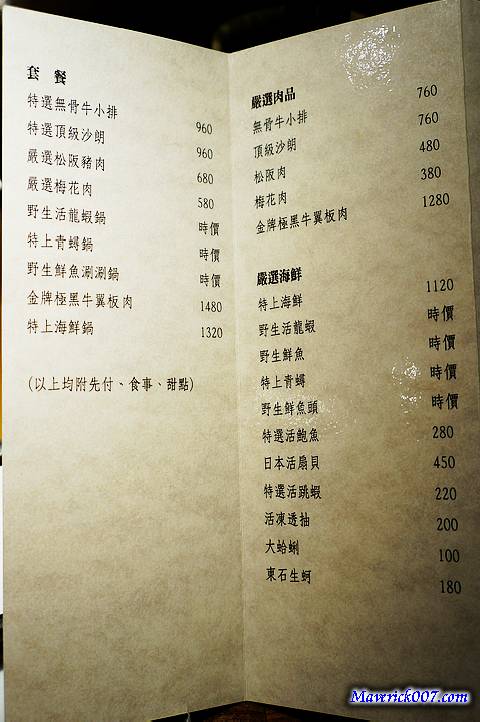 套 餐
特選無骨牛小排 960
特選頂級沙朗 960
嚴選松阪豬肉 680
嚴選梅花肉 580
野生活龍蝦鍋 時價
特上青蟳鍋 時價
野生鮮魚涮涮鍋 時價
金牌極黑牛翼板肉 1480
特上海鮮鍋 1320
(以上均附先付、食事、甜點)
嚴選肉品
無骨牛小排 760
頂級沙朗 760
松阪肉 480
梅花肉 380
金牌極黑牛翼板肉 1280
嚴選海鮮
特上海鮮 1120
野生活龍蝦 時價
野生鮮魚 時價
特上青蟳 時價
野生鮮魚頭 時價
特選活鮑魚 280
日本活扇貝 450
特選活跳蝦 220
活凍透抽 200
大蛤蜊 100
東石生蚵 180
Maverick007.com